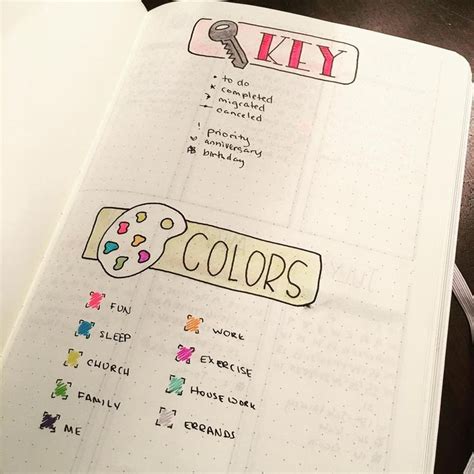 KEY
• to do
× completed
> migrated
canceled
! priority
♡ anniversary
birthday
COLORS
FUN
SLEEP
CHURCH
FAMILY
ME
WORK
EXERCISE
HOUSEWORK
ERRANDS